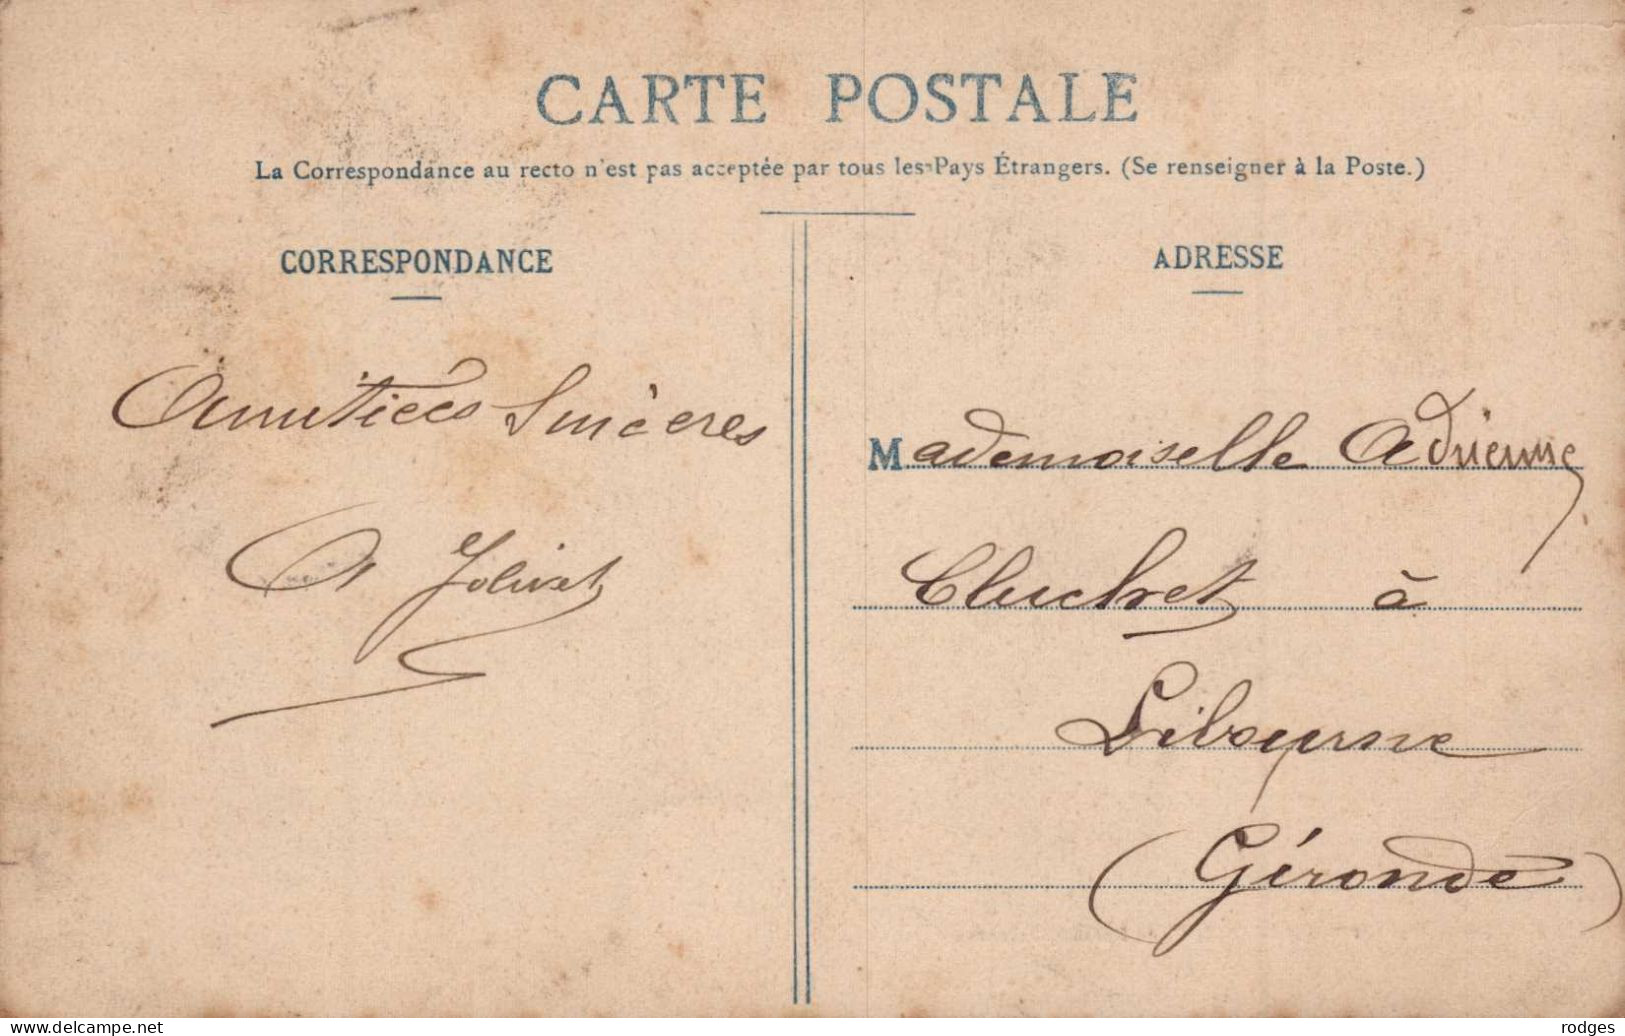 CARTE POSTALE
La Correspondance au recto n'est pas acceptée par tous les Pays Étrangers. (Se renseigner à la Poste.)
CORRESPONDANCE
Amitiées Sincères
A Jolivet
ADRESSE
Mademoiselle Adrienne
Cluchet à
Libourne
(Géronde)
delcampe.net
rodges